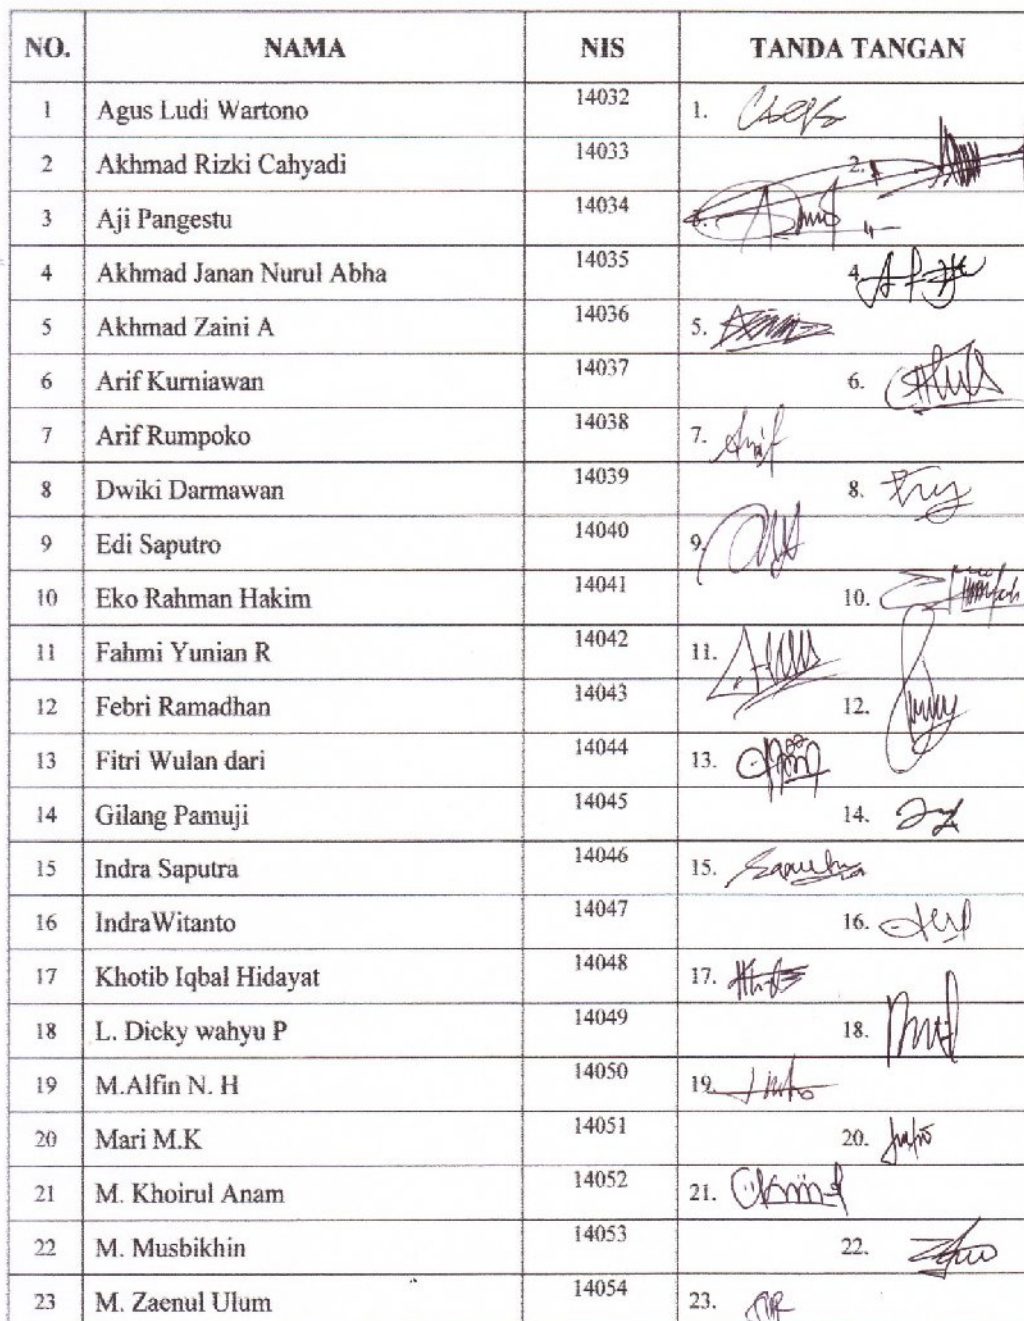 NO. NAMA NIS TANDA TANGAN
1 Agus Ludi Wartono 14032 1.
2 Akhmad Rizki Cahyadi 14033 2.
3 Aji Pangestu 14034 3.
4 Akhmad Janan Nurul Abha 14035 4.
5 Akhmad Zaini A 14036 5.
6 Arif Kurniawan 14037 6.
7 Arif Rumpoko 14038 7.
8 Dwiki Darmawan 14039 8.
9 Edi Saputro 14040 9.
10 Eko Rahman Hakim 14041 10.
11 Fahmi Yunian R 14042 11.
12 Febri Ramadhan 14043 12.
13 Fitri Wulan dari 14044 13.
14 Gilang Pamuji 14045 14.
15 Indra Saputra 14046 15.
16 IndraWitanto 14047 16.
17 Khotib Iqbal Hidayat 14048 17.
18 L. Dicky wahyu P 14049 18.
19 M.Alfin N. H 14050 19.
20 Mari M.K 14051 20.
21 M. Khoirul Anam 14052 21.
22 M. Musbikhin 14053 22.
23 M. Zaenul Ulum 14054 23.